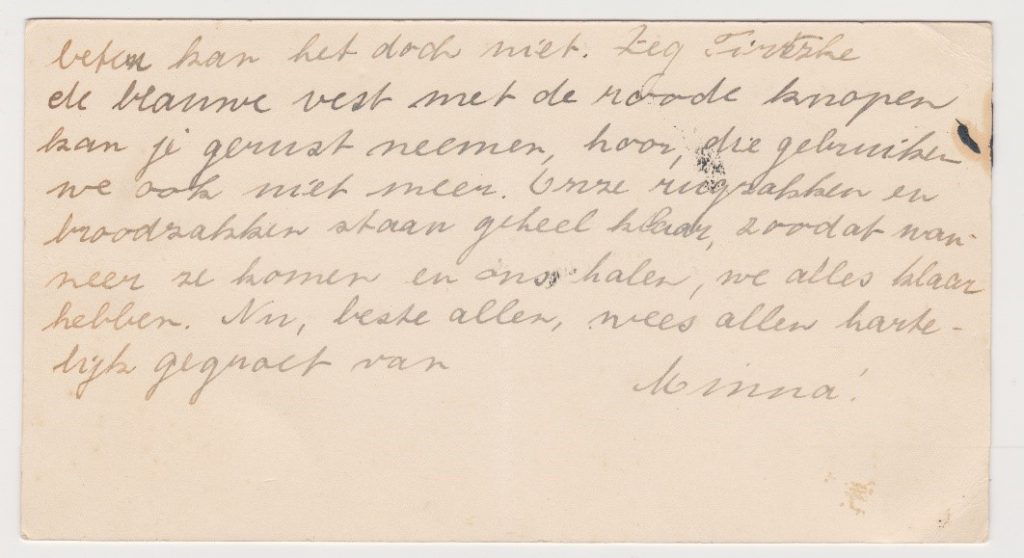 beter kan het doch niet. Zeg
de blauwe vest met de roode knopen
kan je gerust neemen, hoor, die gebruiken
we ook niet meer. Onze rugzakken en
broodzakken staan geheel klaar, zoodat wan-
neer ze komen en ons halen, we alles klaar
hebben. Nu, beste allen, wees allen harte-
lijk gegroet van
Minna!